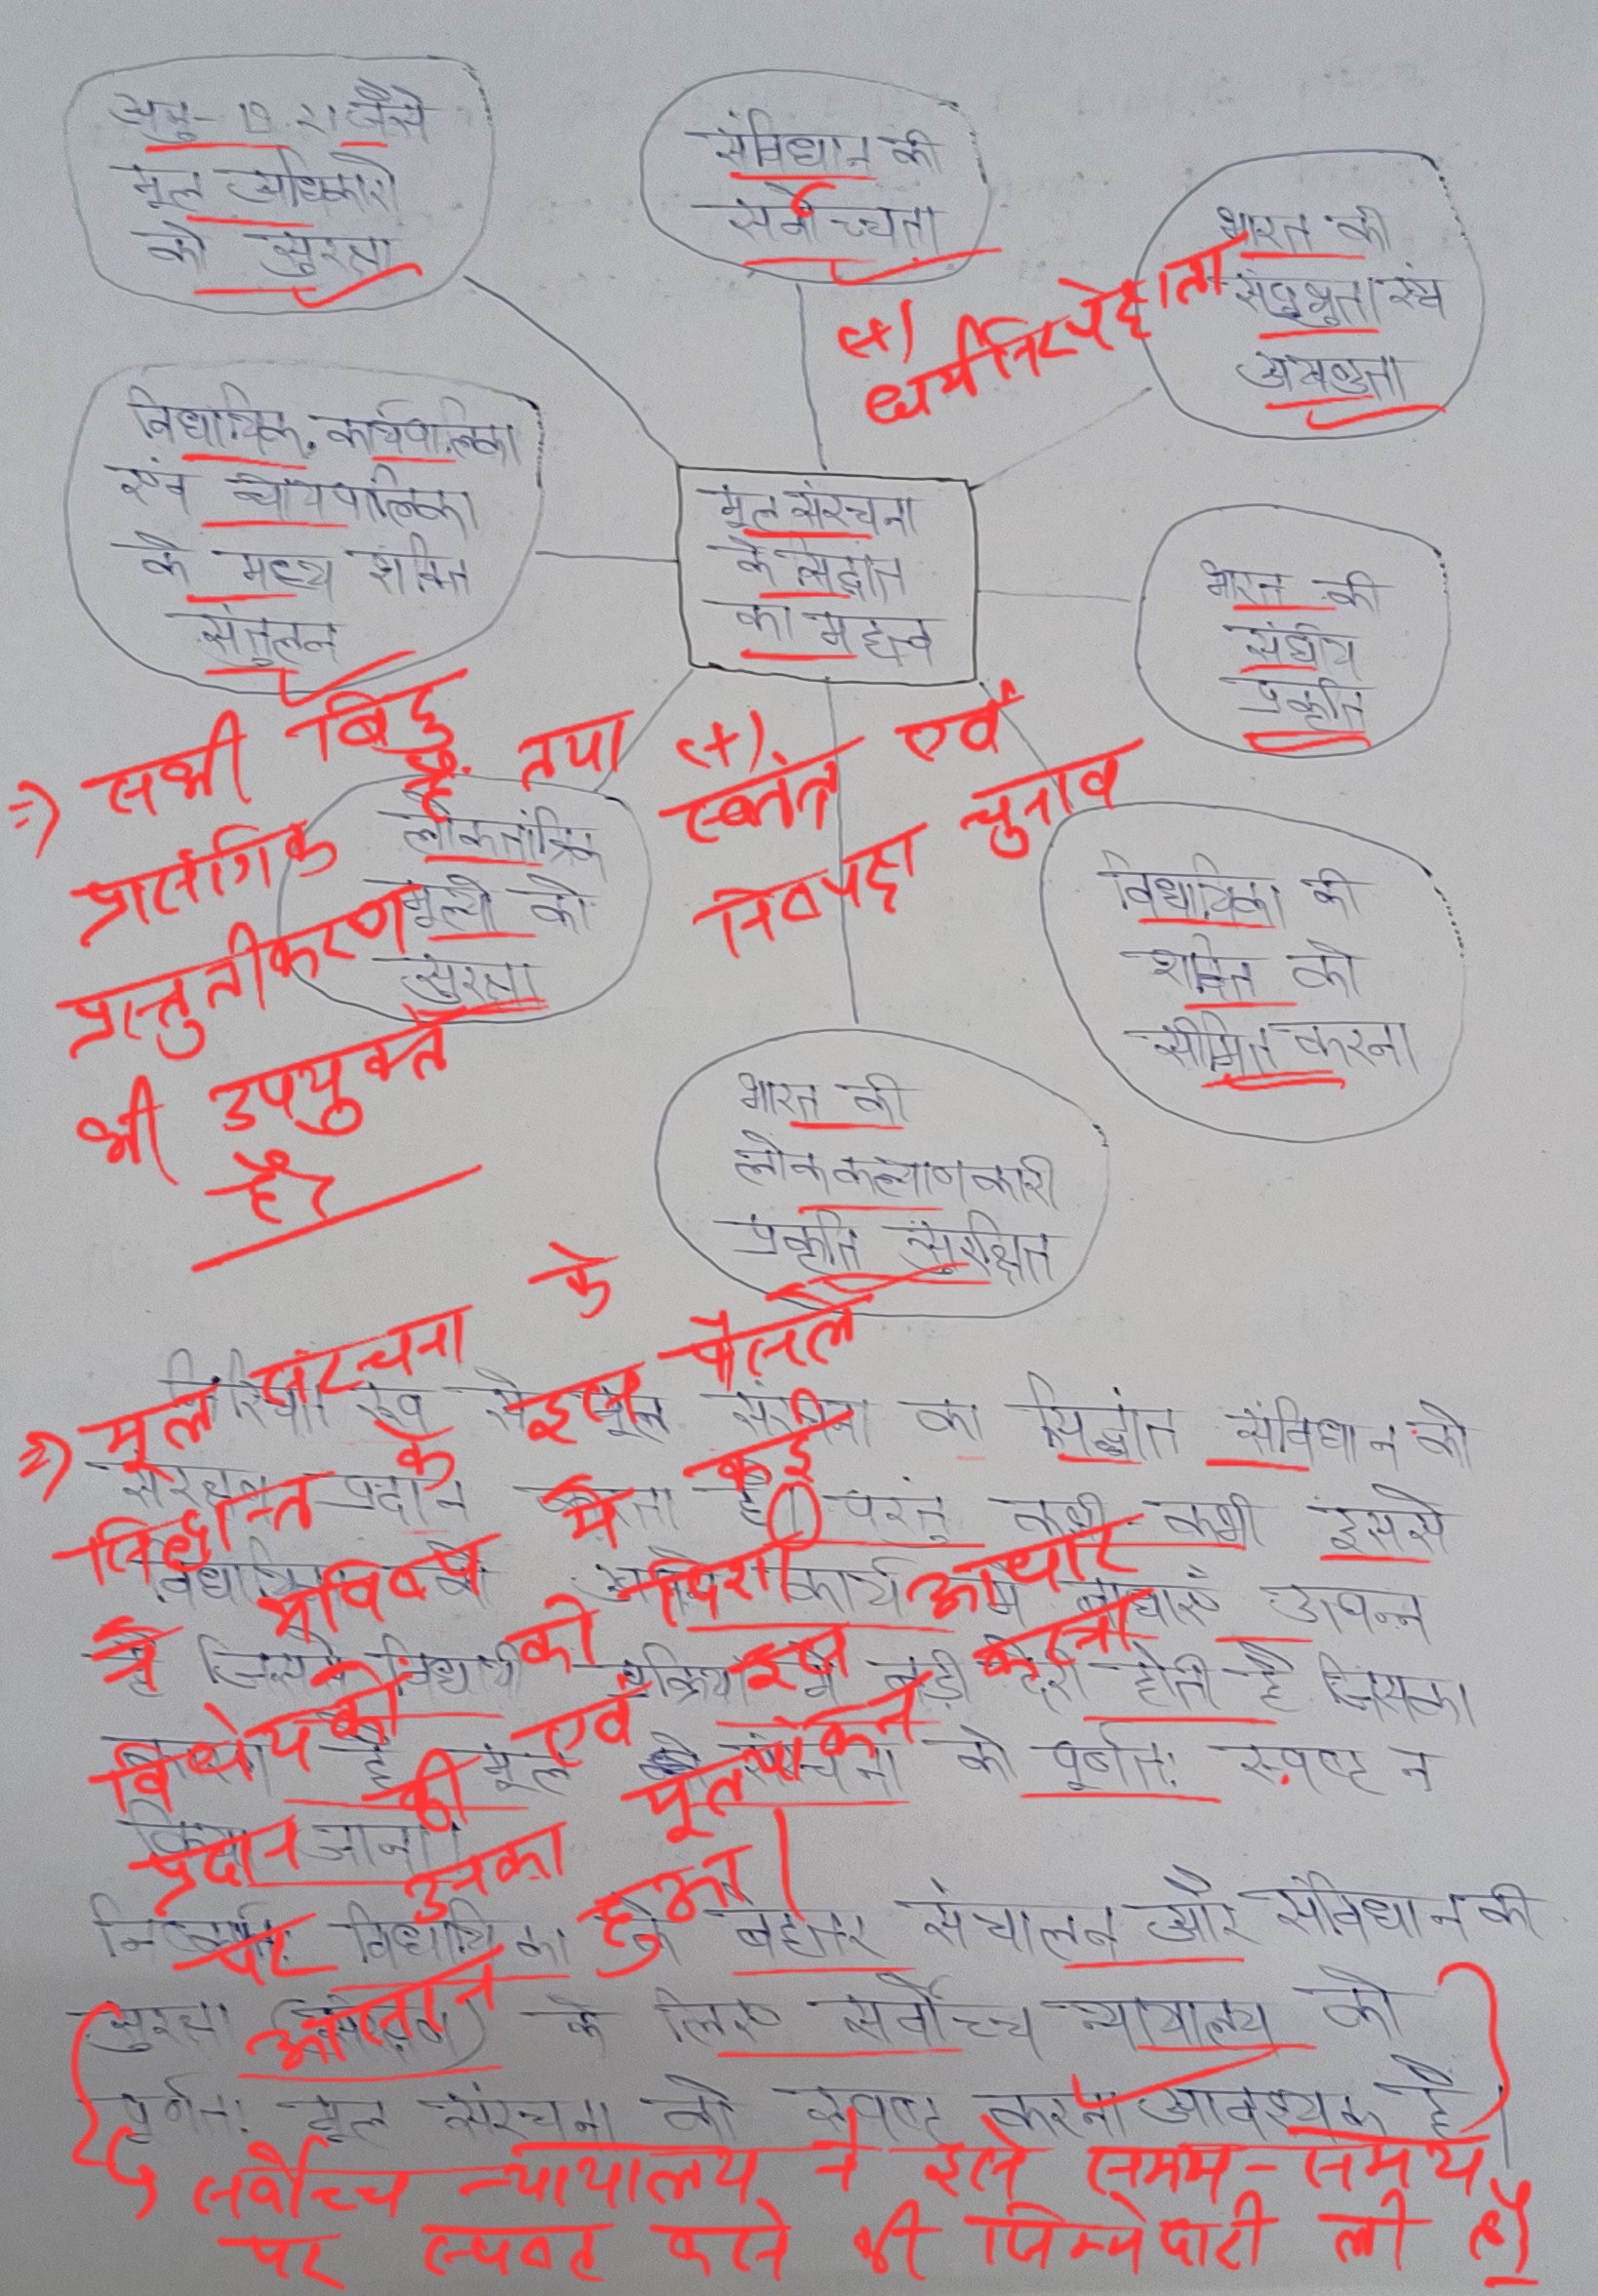 अनु- 19, 21 जैसे
मूल अधिकारों
को सुरक्षा
संविधान की
सर्वोच्चता
(+)
धर्मनिरपेक्षता
भारत की
संप्रभुता एंव
अखण्डता
विधायिका, कार्यपालिका
एंव न्यायपालिका
के मध्य शक्ति
संतुलन
मूल संरचना
के सिद्धांत
का महत्व
भारत की
संघीय
प्रकृति
=) सभी बिंदु
प्रासंगिक है तथा
प्रस्तुतीकरण
भी उपयुक्त
है।
(+)
स्वतंत्र एवं
निष्पक्ष चुनाव
लोकतांत्रिक
मूल्यों को
सुरक्षा
विधायिका की
शक्ति को
सीमित करना
भारत की
लोककल्याणकारी
प्रकृति सुरक्षित
=) मूल संरचना के
सिद्धान्त के इस फैसले
ने भविष्य में कई
विधेयकों को दिशा
प्रदान की एवं इस आधार
पर उनका मूल्यांकन करना
आसान हुआ।
एंव से मूल संरचना का सिद्धांत संविधान को
संरक्षण प्रदान करता है। परंतु कभी-कभी इससे
विधायिका के कार्य में बाधाएं उत्पन्न
है जिससे विधायी प्रक्रिया में बड़ी देरी होती है जिसका
कारण है मूल संरचना को पूर्णतः स्पष्ट न
किया जाना।
निष्कर्षतः विधायिका के बेहतर संचालन और संविधान की
सुरक्षा के लिए सर्वोच्च न्यायालय को
पूर्णतः मूल संरचना को स्पष्ट करना आवश्यक है।
सर्वोच्च न्यायालय ने इसे समय-समय
पर स्पष्ट करने की जिम्मेदारी ली है।